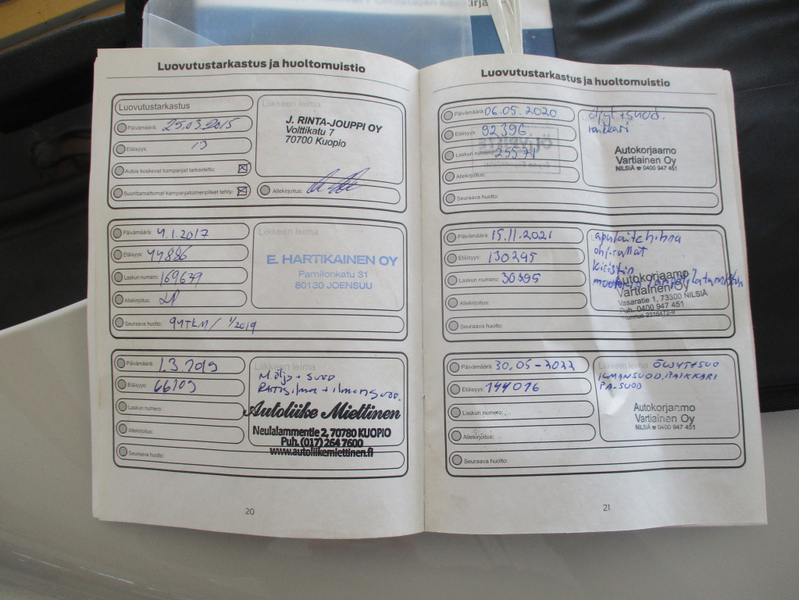 Luovutustarkastus ja huoltomuistio
Luovutustarkastus
Liikkeen leima
Päivämäärä: 25.03.2015
J. RINTA-JOUPPI OY
Volttikatu 7
70700 Kuopio
Etäisyys: 13
Autoa koskevat kampanjat tarkastettu:
Suorittamattomat kampanjatoimenpiteet tehty:
Allekirjoitus:
Päivämäärä: 4.1.2017
Liikkeen leima
Etäisyys: 44886
E. HARTIKAINEN OY
Pamilonkatu 31
80130 JOENSUU
Laskun numero: 169679
Allekirjoitus:
Seuraava huolto: 94TKM / 1/2019
Päivämäärä: 1.3.2019
Etäisyys: 66109
M.öljy + SUOD
Laskun numero:
Autoliike Miettinen
Neulalammentie 2, 70780 KUOPIO
Puh. (017) 264 7600
www.autoliikemiettinen.fi
Allekirjoitus:
Seuraava huolto:
20
Luovutustarkastus ja huoltomuistio
Päivämäärä: 06.05.2020
öljyt + suod.
raikkari
Etäisyys: 92396
Laskun numero: 25571
Autokorjaamo
Vartiainen Oy
NILSIÄ ☎ 0400 947 451
Allekirjoitus:
Seuraava huolto:
Päivämäärä: 15.11.2021
apulaitehihna
ohj.rullat
kiristin
Etäisyys: 130245
Laskun numero: 30395
Autokorjaamo
Vartiainen Oy
Vasaratie 1, 73300 NILSIÄ
Puh. 0400 947 451
Allekirjoitus:
Seuraava huolto:
Päivämäärä: 30.05-2022
ÖLJYT+SUO
ILMANSUOD, RAIKKARI
PA-SUOD
Etäisyys: 144076
Laskun numero:
Autokorjaamo
Vartiainen Oy
NILSIÄ ☎ 0400 947 451
Allekirjoitus:
Seuraava huolto:
21